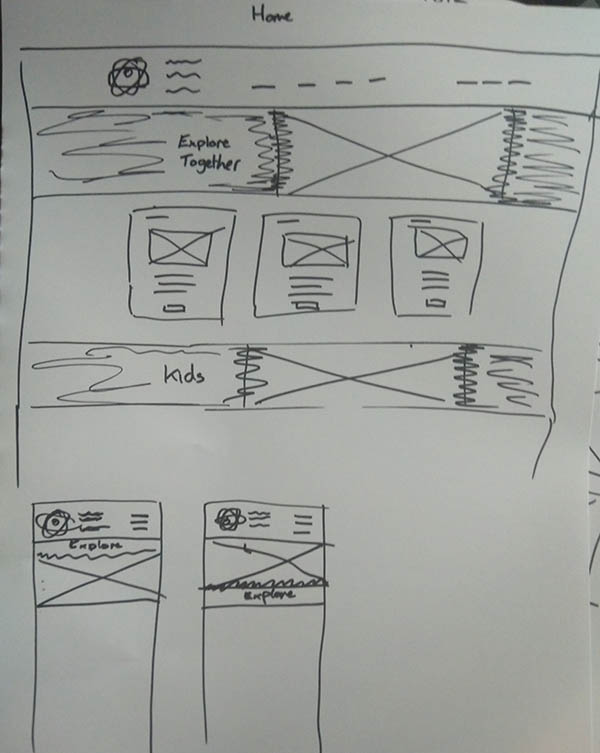 Home
Explore
Together
Kids
Explore
Explore